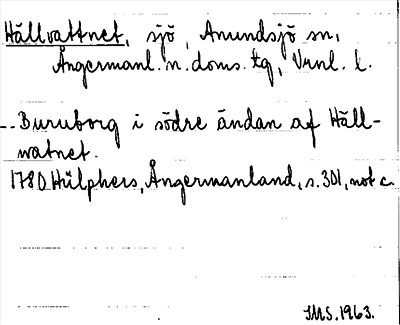 Hällvattnet, sjö, Anundsjö sn,
Ångermanl. n. doms. tg, Vrnl. l.
-- Buruborg i södre ändan af Häll-
watnet.
1780 Hülphers, Ångermanland, s. 301, not c.
IMS. 1963.